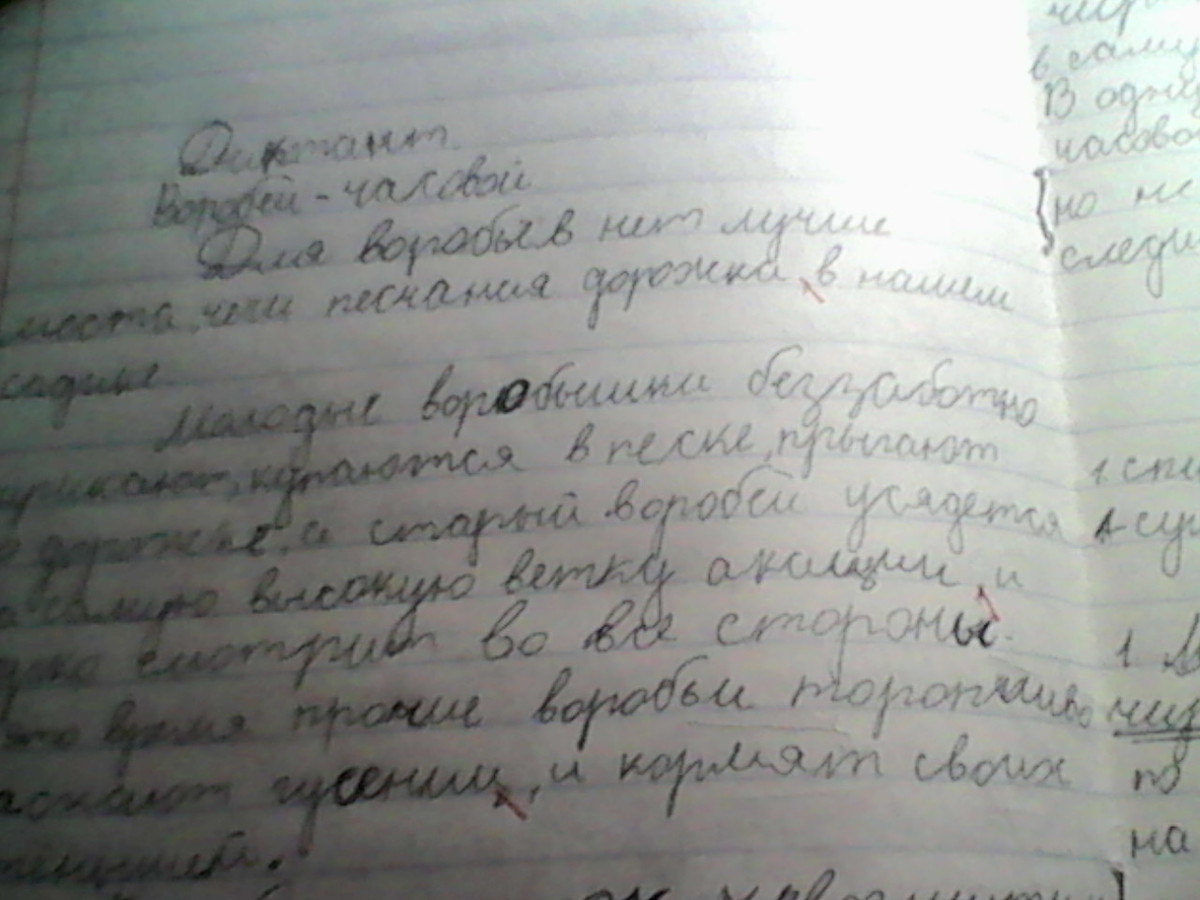 Диктант
Воробей-часовой
Для воробьёв нет лучше
места, чем песчания дорожка, в нашем
садике
Молодые воробышки беззаботно
чирикают, купаются в песке, прыгают
дорожке, а старый воробей усядется
самую высокую ветку акации, и
смотрит во все стороны.
это время прочие воробьи торопливо
таскают гусениц, и кормят своих
птенцов.
в сам
В одн
часово
но не
следи
1 спи
1
чир
по
на